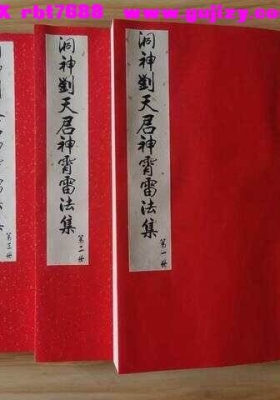 X rbt7688 www.gujixy.com
洞神劉天君神霄雷法集
第一册
洞神劉天君神霄雷法集
第二册
第三册